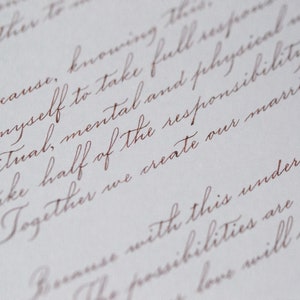 ther to m
cause, knowing this,
myself to take full respon
tual, mental and physical
ke half of the responsibility
Together we create our marri
Because with this under
The possibilities are
love will